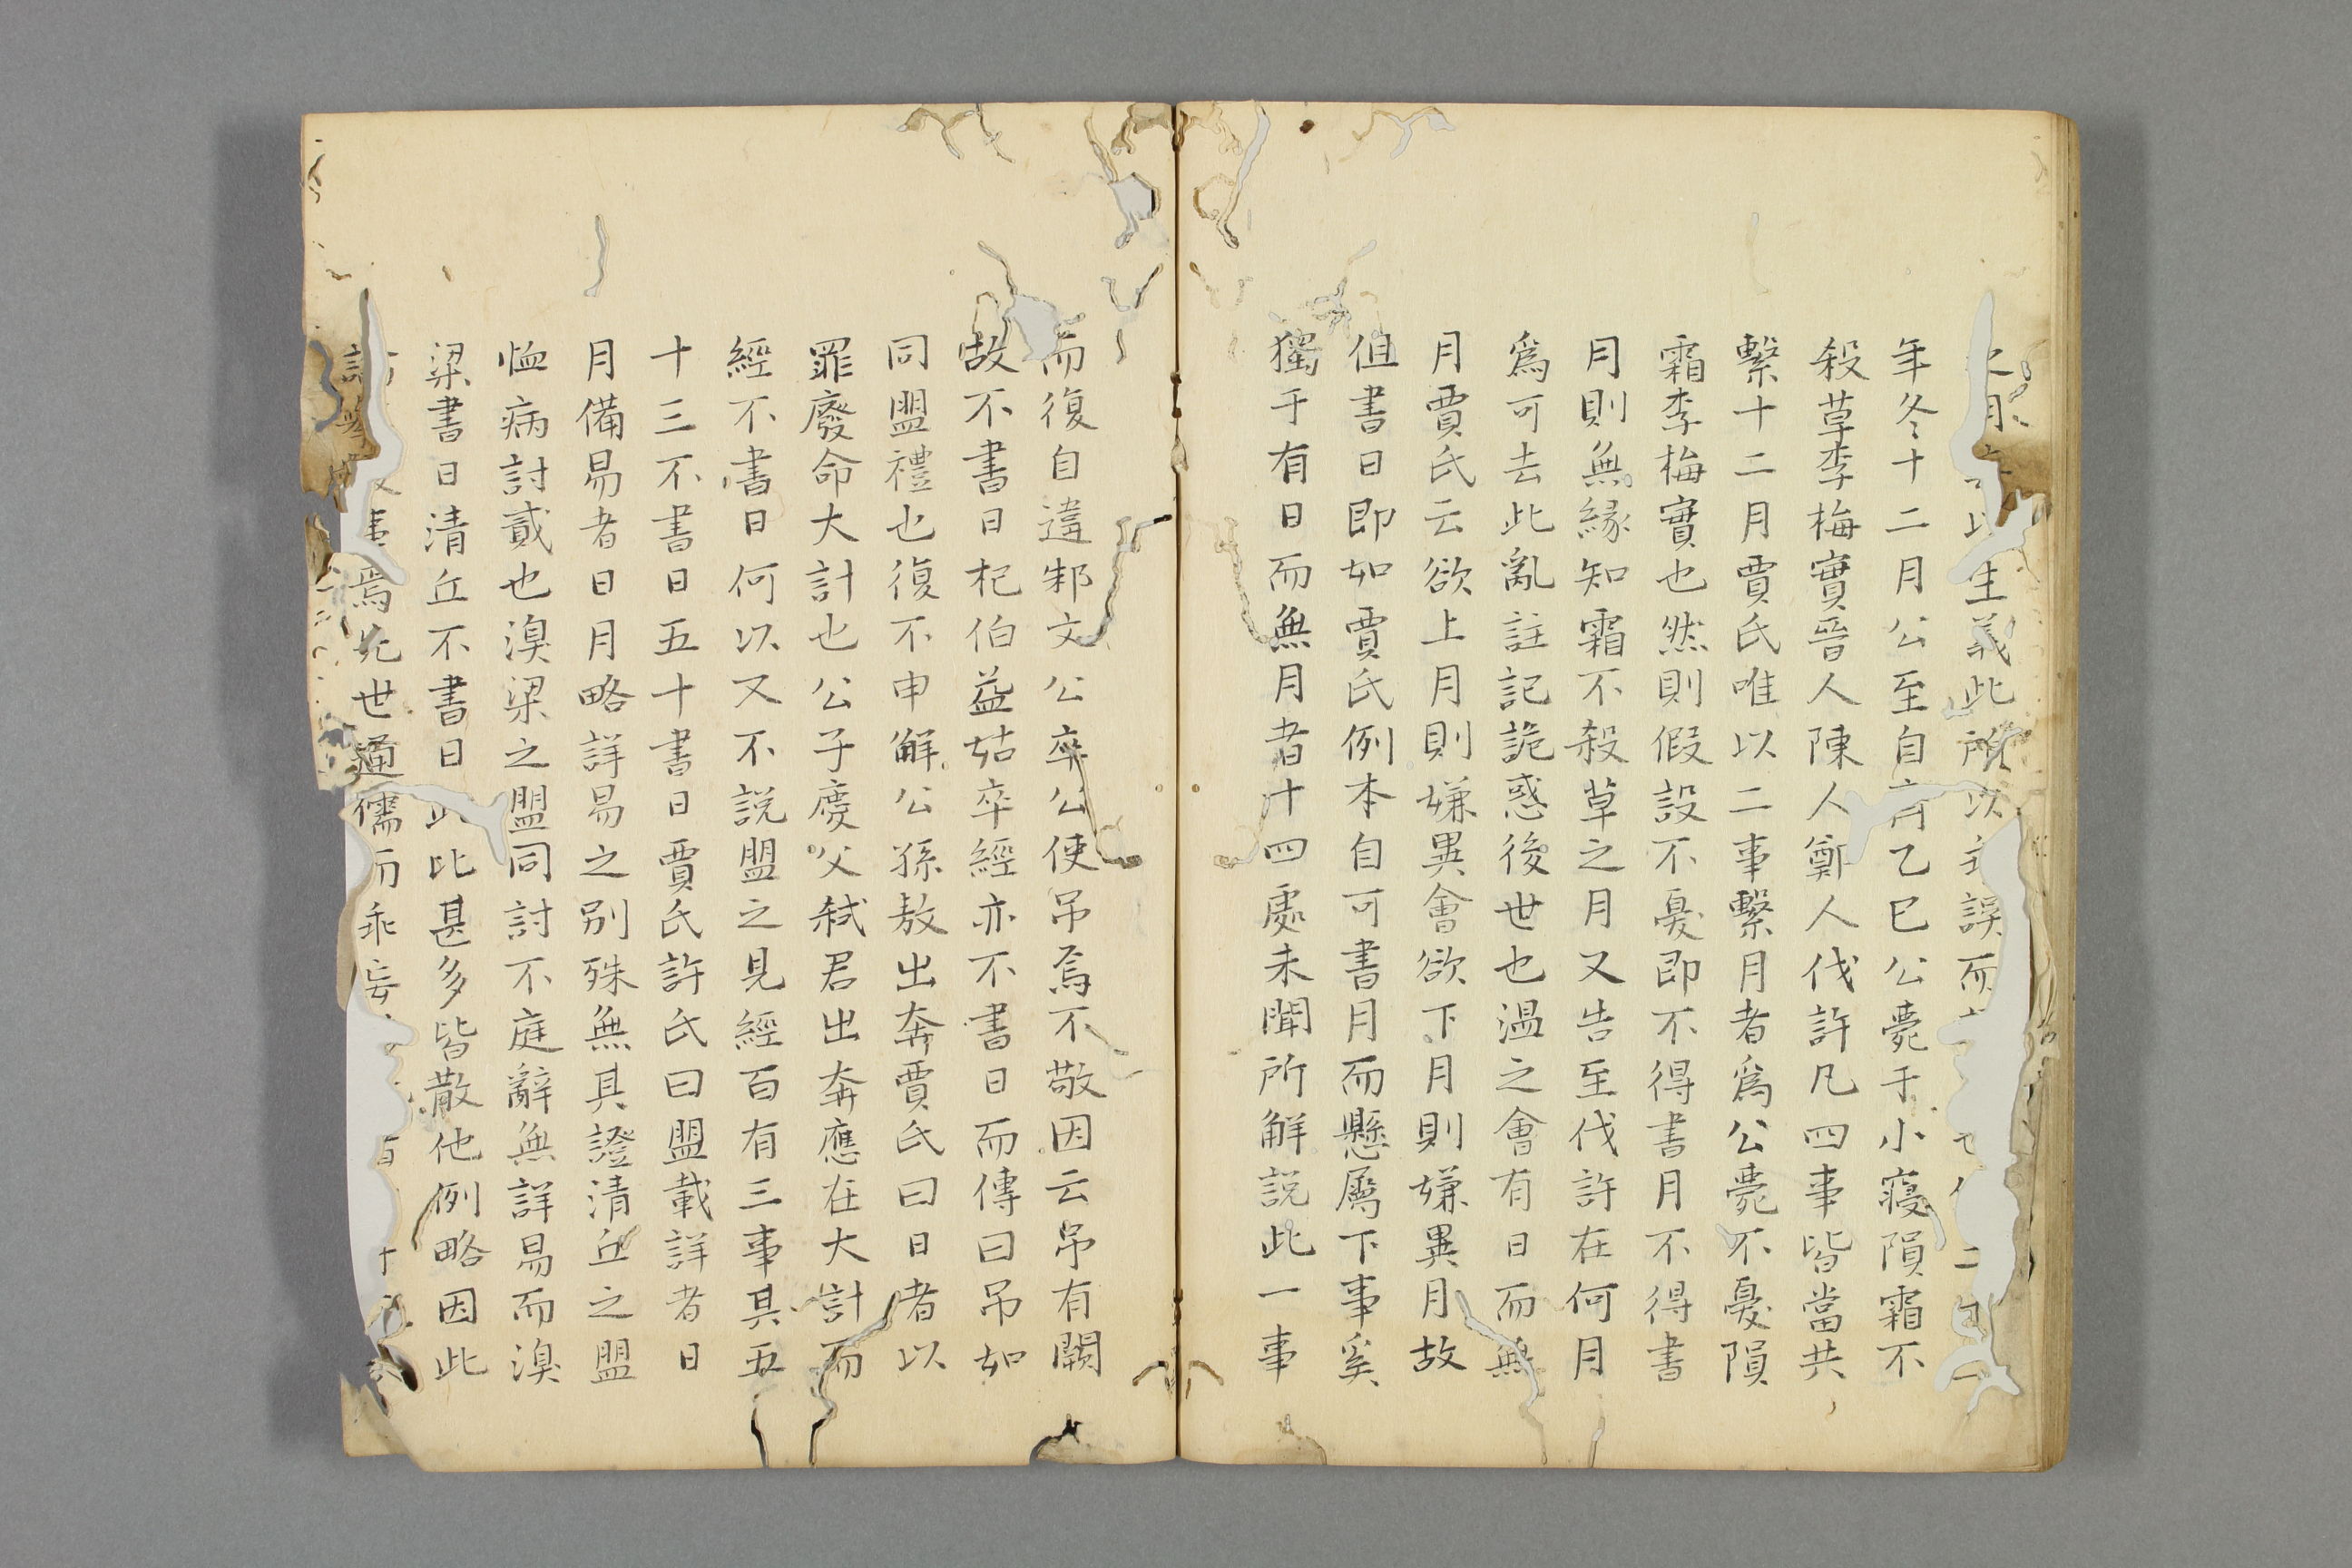 月生義此所以誤而二
年冬十二月公至自齊乙巳公薨于小寢隕霜不
殺草李梅實晉人陳人鄭人伐許凡四事皆當共
繫十二月賈氏唯以二事繫月者爲公薨不憂隕
霜李梅實也然則假設不憂即不得書月不得書
月則無緣知霜不殺草之月又告至伐許在何月
爲可去此亂註記詭惑後世也溫之會有日而無
月賈氏云欲上月則嫌異會欲下月則嫌異月故
但書日即如賈氏例本自可書月而懸屬下事奚
獨于有日而無月者十四處未聞所解説此一事
而復自違邾文公卒公使吊焉不敬因云吊有闕
故不書日杞伯益姑卒經亦不書日而傳曰吊如
同盟禮也復不申解公孫敖出奔賈氏曰日者以
罪廢命大計也公子慶父弑君出奔應在大計而
經不書日何以又不説盟之見經百有三事其五
十三不書日五十書日賈氏許氏曰盟載詳者日
月備易者日月略詳易之别殊無其證清丘之盟
恤病討貳也湨梁之盟同討不庭辭無詳易而湨
梁書日清丘不書日此比甚多皆散他例略因此
焉世通儒而乖妄